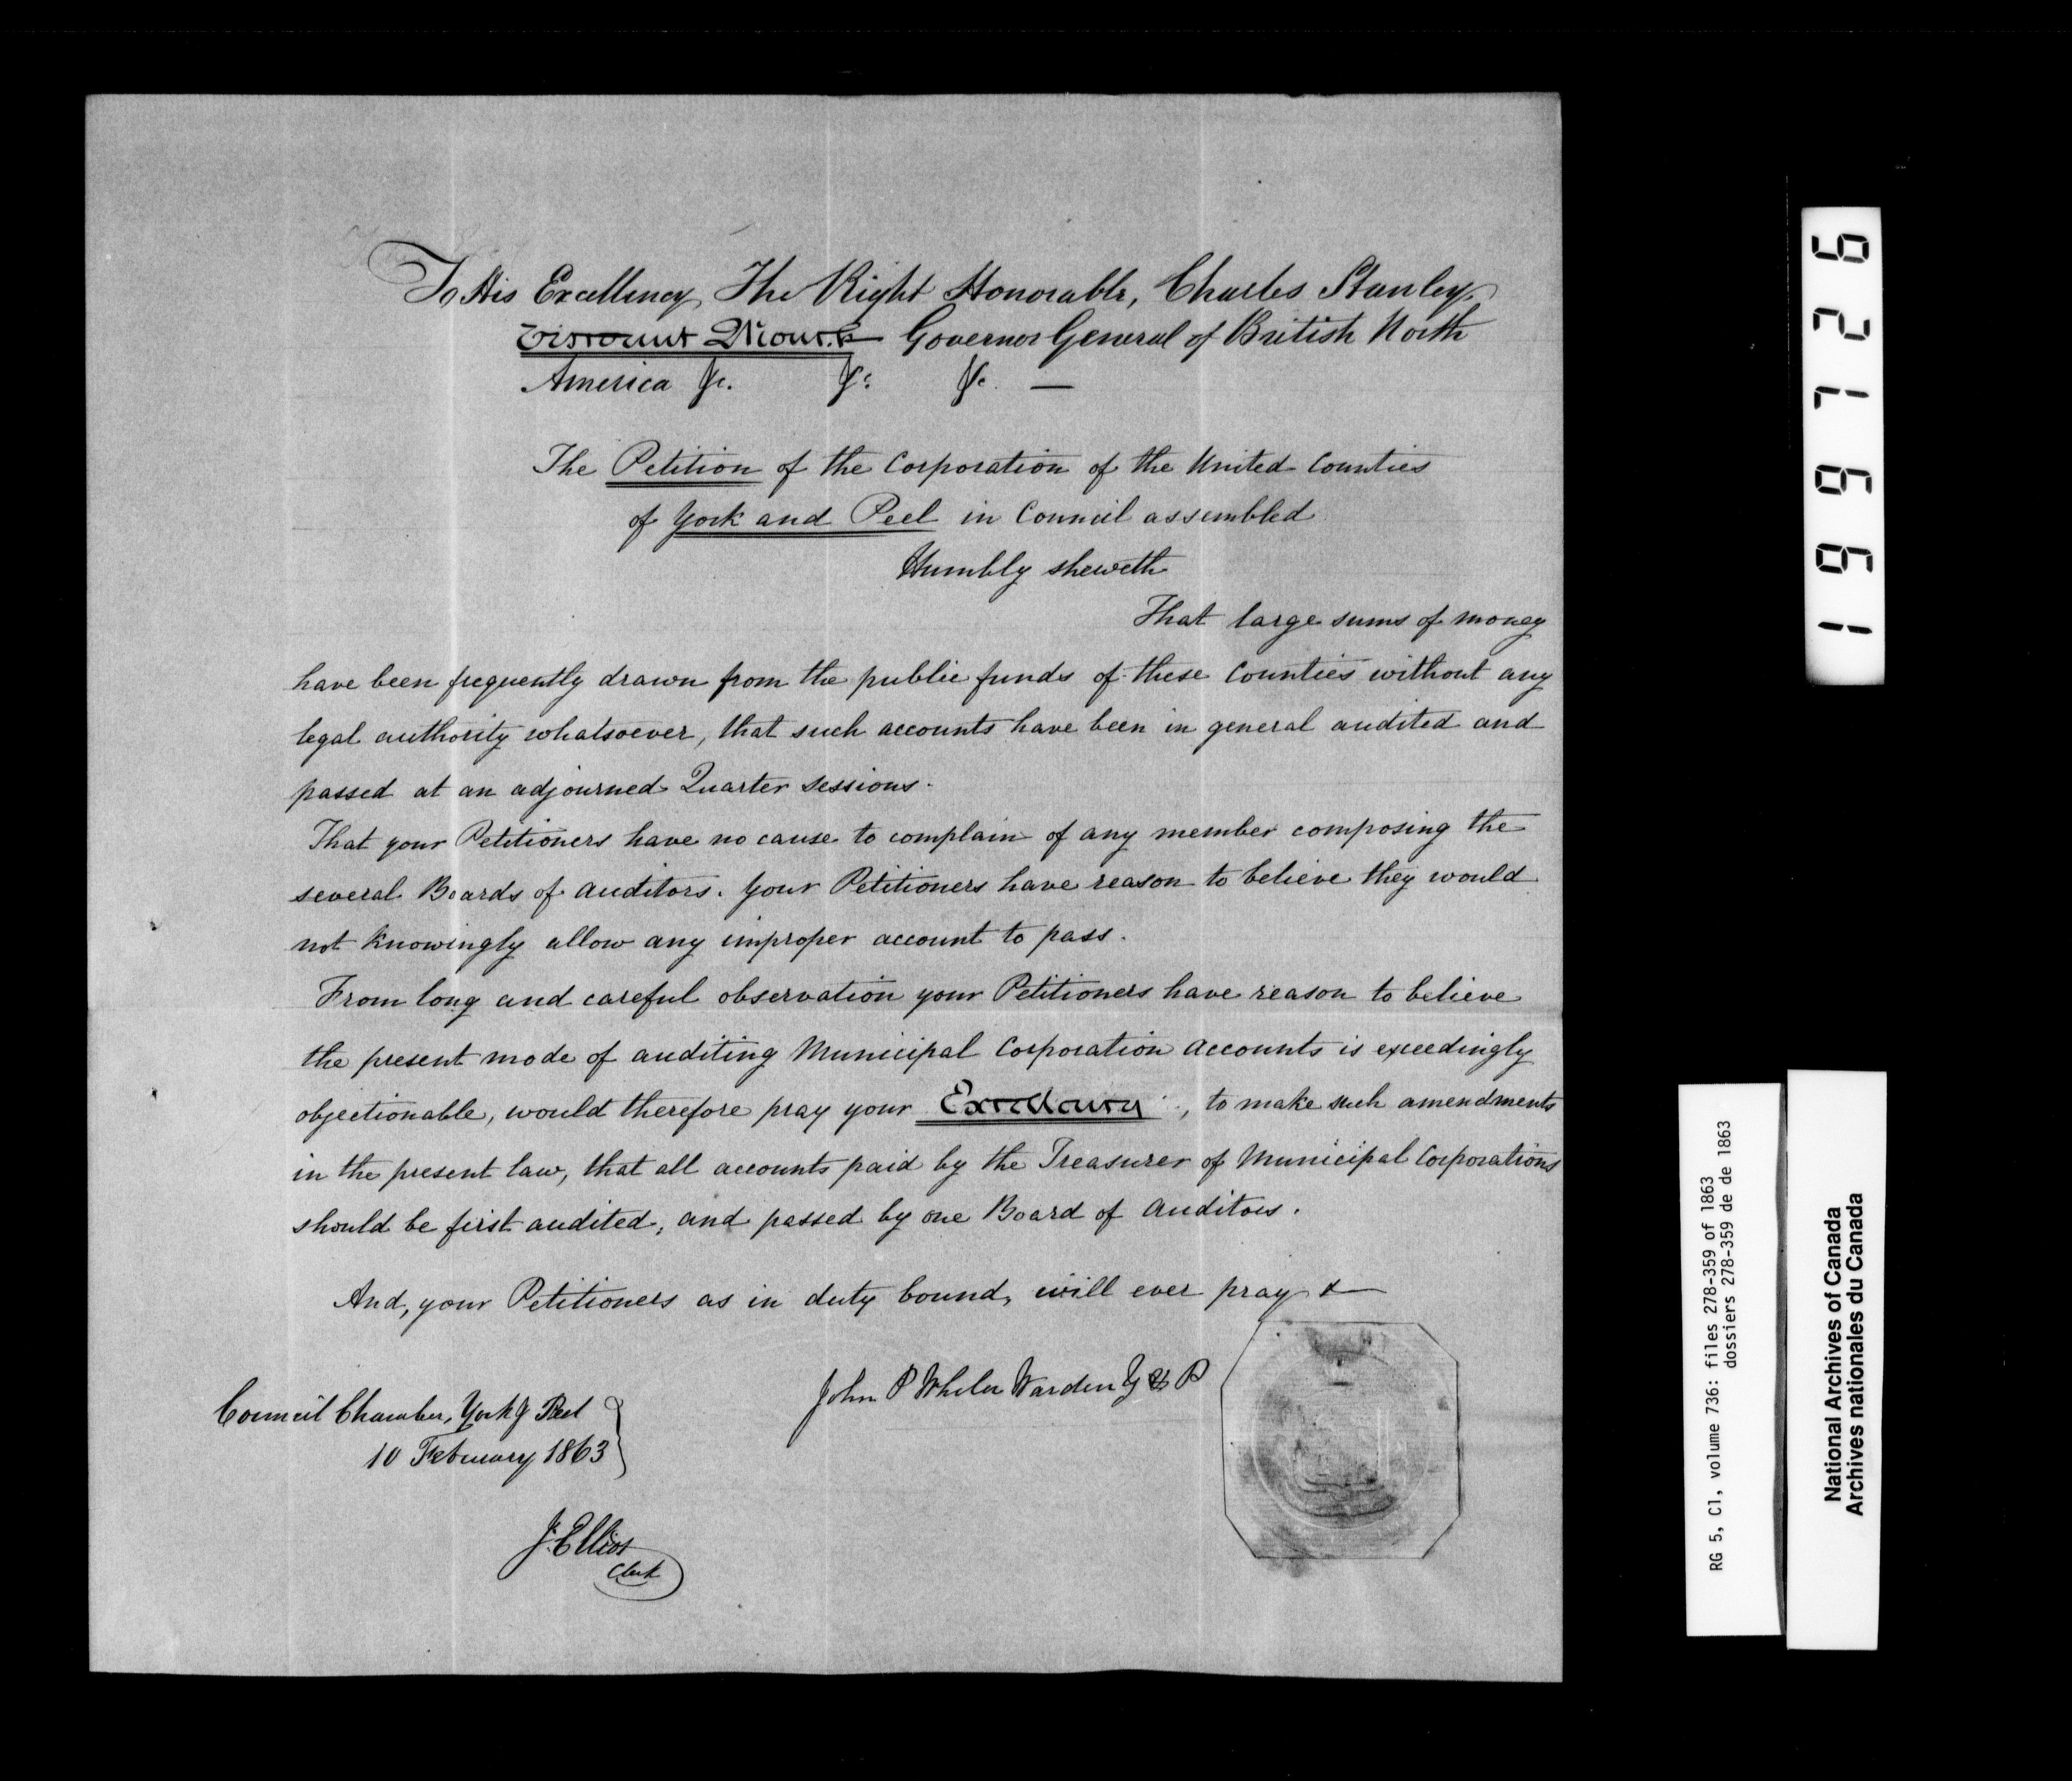 To His Excellency, The Right Honorable, Charles Stanley,
Viscount Monck Governor General of British North
America &c. &c. &c. —
The Petition of the Corporation of the United Counties
of York and Peel in Council assembled
Humbly sheweth
That large sums of money
have been frequently drawn from the public funds of these Counties without any
legal authority whatsoever, that such accounts have been in general audited and
passed at an adjourned Quarter Sessions.
That your Petitioners have no cause to complain of any member composing the
several Boards of Auditors. Your Petitioners have reason to believe they would
not knowingly allow any improper account to pass.
From long and careful observation your Petitioners have reason to believe
the present mode of auditing Municipal Corporation Accounts is exceedingly
objectionable, would therefore pray your Excellency, to make such amendments
in the present law, that all accounts paid by the Treasurer of Municipal Corporations
should be first audited, and passed by one Board of Auditors.
And, your Petitioners as in duty bound, will ever pray &
John P Wheler Warden Y & P
Council Chamber, York & Peel
10 February 1863
J. Elliot
Clerk
199726
RG 5, C1, volume 736: files 278-359 of 1863
dossiers 278-359 de de 1863
National Archives of Canada
Archives nationales du Canada